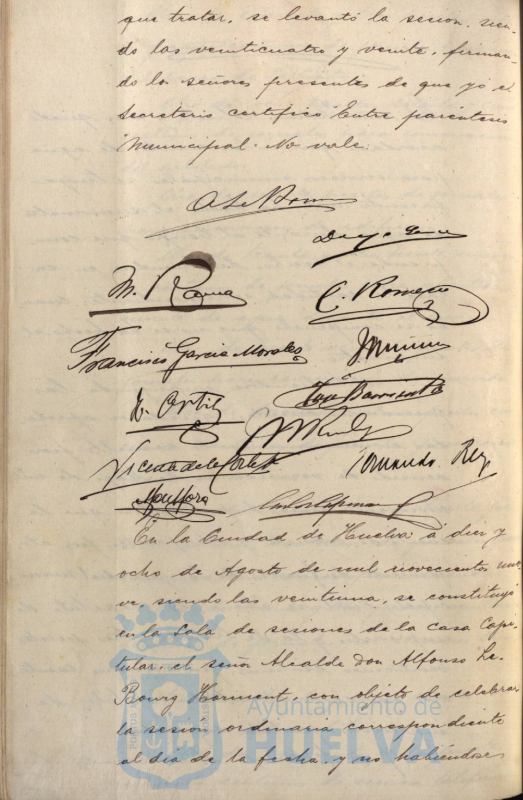 que tratar, se levantó la sesion, sien-
do las veinticuatro y veinte, firman-
do los señores presentes de que yo el
Secretario certifico. Entre paréntesis
"Municipal. No vale.
M. Rama
C. Romero
Francisco Garcia Morales
J. Barrientos
Vicente de la Corte
Fernando Rey
En la Ciudad de Huelva a diez y
ocho de Agosto de mil novecientos nue-
ve, siendo las veintiuna, se constituyó
en la Sala de sesiones de la casa Capi-
tular, el señor Alcalde Don Alfonso Le
Bourg Horment, con objeto de celebrar
la sesión ordinaria correspondiente
al dia de la fecha, y no habiendose
Ayuntamiento de
HUELVA